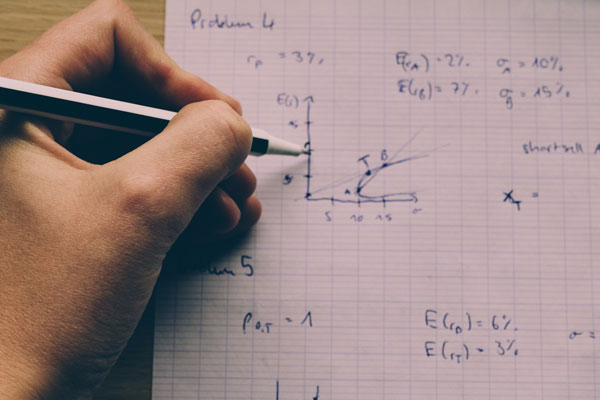 Problem 4
r_F = 3%  E(r_A) = 2%  σ_A = 10%
E(r_B) = 7%  σ_B = 15%
E(r)
shortsell A
T B
A
x_T =
5 10 15 σ
5
ρ_D,T = 1  E(r_D) = 6%
E(r_T) = 3%  σ =